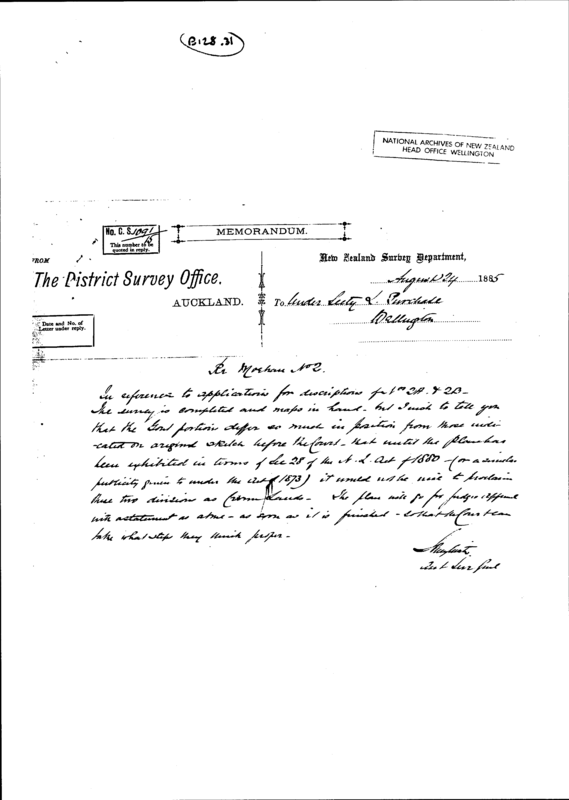 B128.31
NATIONAL ARCHIVES OF NEW ZEALAND
HEAD OFFICE WELLINGTON
No. C. S. 1091
This number to be
quoted in reply.
MEMORANDUM.
FROM
New Zealand Survey Department,
The District Survey Office.
August 24 1885
AUCKLAND.
To Under Secty L. Purchase
Wellington
Date and No. of
Letter under reply.
Re Moehau No 2.
In reference to applications for descriptions of 2A & 2B -
The survey is completed and maps in hand - but I wish to tell you
that the Govt portions differ so much in position from those indi-
cated on original sketch before the Court - that until the plan has
been exhibited in terms of Sec 28 of the N. L. Act of 1880 - (or a similar
publicity given to under the Act of 1873) it would not be wise to proclaim
these two divisions as Crown Lands - The plan will go for judges approval
with a statement as above - as soon as it is finished - so that the Court can
take what steps they think proper -
Asst Surv Genl